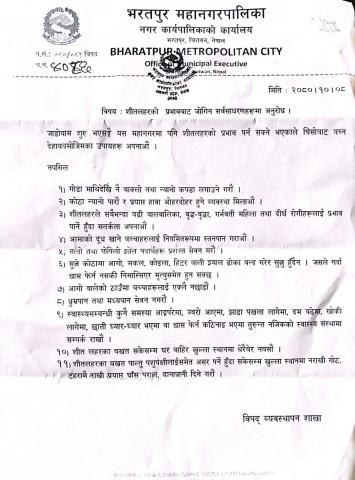 भरतपुर महानगरपालिका
नगर कार्यपालिकाको कार्यालय
भरतपुर, चितवन, नेपाल
BHARATPUR METROPOLITAN CITY
Office of Municipal Executive
Chitwan, Nepal
प.सं.: ०८०/०८१ विपद
च.नं.
मिति : २०८०।१०।०८
विषय : शीतलहरको प्रभावबाट जोगिन सर्वसाधरणहरूमा अनुरोध ।
जाडोयाम शुरु भएसँगै यस महानगरमा पनि शीतलहरको प्रभाव पर्न सक्ने भएकाले चिसोबाट बच्न
देहायबमोजिमका उपायहरू अपनाऔं ।
तपसिल
१) गोडा माथिदेखि नै बाक्लो तथा न्यानो कपडा लगाउने गरौं ।
२) कोठा न्यानो पारौं र प्रयाप्त हावा ओहरदोहर हुने व्यवस्था मिलाऔं ।
३) शीतलहरले सबैभन्दा बढी बालबालिका, वृद्ध-वृद्धा, गर्भवती महिला तथा दीर्घ रोगीहरूलाई प्रभाव
पार्ने हुँदा सतर्कता अपनाऔं ।
४) आमाको दूध खाने बच्चाहरूलाई नियमितरूपमा स्तनपान गराऔं ।
५) तातो तथा पोषिलो झोल पदार्थहरू प्रशस्त सेवन गरौं ।
६) सुत्ने कोठामा आगो, मकल, कोइला, हिटर बाली झ्याल ढोका बन्द गरेर सुत्नु हुँदैन । जसले गर्दा
श्वास फेर्न नसकी निसास्सिएर मृत्युसमेत हुन सक्छ ।
७) आगो बालेको ठाउँमा बच्चाहरूलाई एक्लै नछाडौं ।
८) धुम्रपान तथा मध्यपान सेवन नगरौं ।
९) स्वास्थ्यसम्बन्धी कुनै समस्या आइपरेमा, ज्वरो आएमा, झाडा पखला लागेमा, दम बढेमा, खोकी
लागेमा, छाती घ्यार-घ्यार भएमा वा श्वास फेर्न कठिनाइ भएमा तुरुन्त नजिकको स्वास्थ्य संस्थामा
सम्पर्क राखौं ।
१०) शीत लहरका बखत सकेसम्म घर बाहिर खुल्ला स्थानमा धेरैबेर नबसौं ।
११) शीतलहरका बखत पाल्तु पशुपंक्षीलाईसमेत असर गर्ने हुँदा सकेसम्म खुल्ला स्थानमा नराखी गोठ,
टहरामै राखी प्रयाप्त घाँस पराल, दानापानी दिने गरौं ।
विपद् व्यवस्थापन शाखा